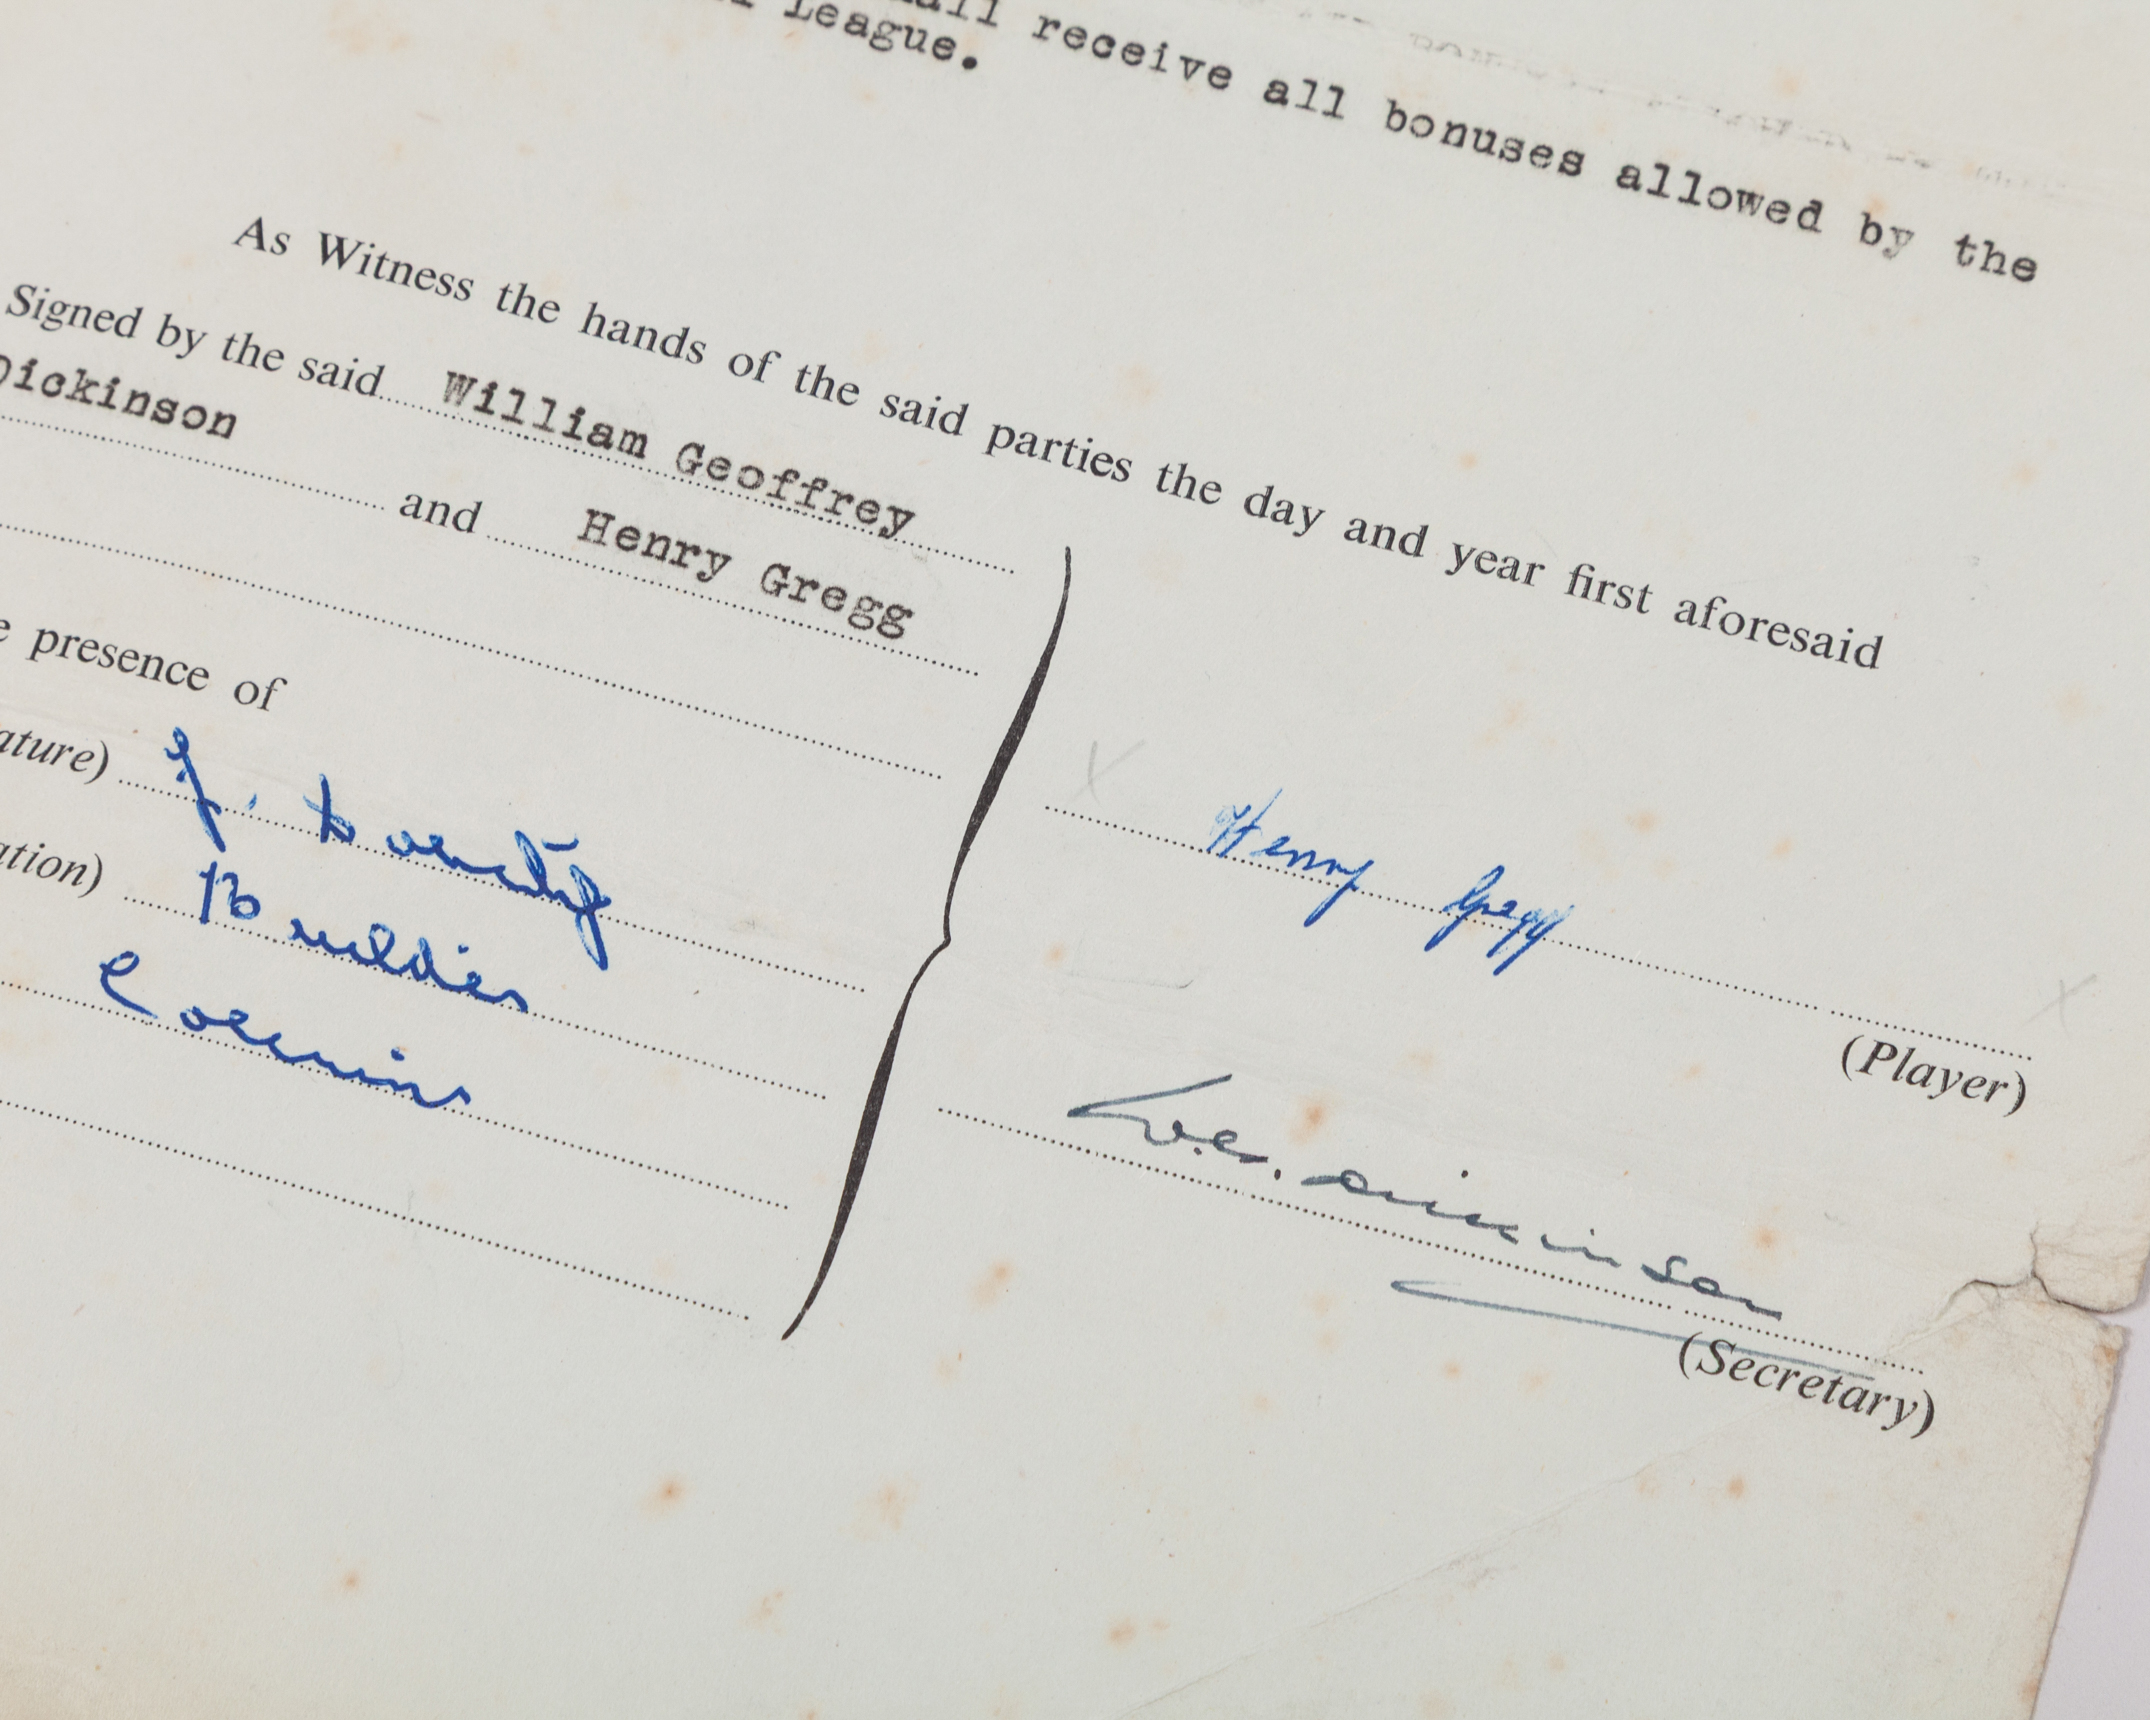 all receive all bonuses allowed by the
League.
As Witness the hands of the said parties the day and year first aforesaid
Signed by the said William Geoffrey
Dickinson and Henry Gregg
presence of
ature) J. Doherty
ation) Builder
Coleraine
Henry Gregg
(Player)
W.G. Dickinson
(Secretary)